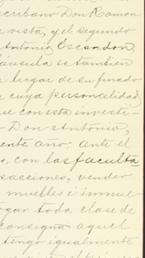 cribano Don Ramon
vista, y el segundo
Antonio Escandon,
láusula es tambien
legar de su finado
cuya personalidad
e con esta investi-
Don Antonio,
ente año, ante el
con las faculta
sacciones, vender
muebles é inmue
gar toda clase de
consigna aquel
tengo igualmente